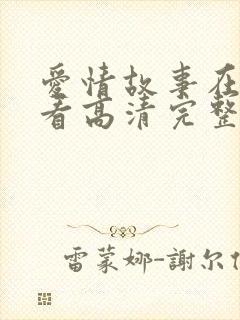 愛情故事在
看高清完整
雷蒙娜-謝尔